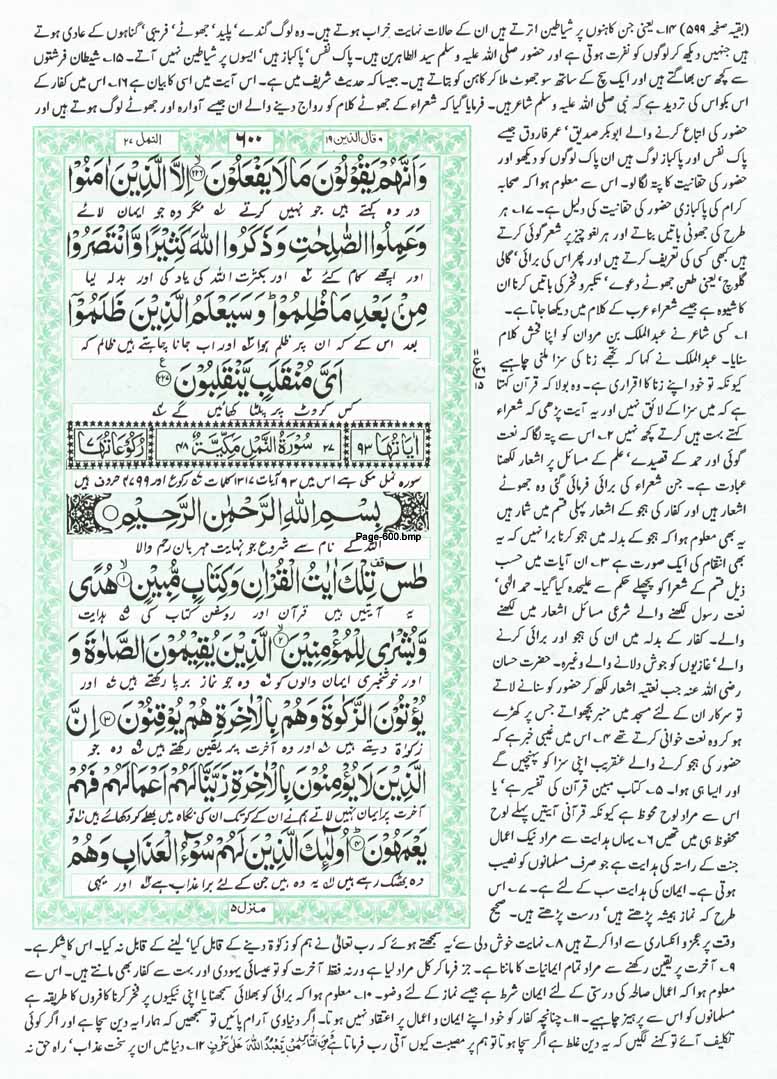 (بقیہ صفحہ ۵۹۹) ۱۴۔ یعنی جن کاہنوں پر شیاطین اترتے ہیں ان کے حالات نہایت خراب ہوتے ہیں۔ وہ لوگ گندے' پلید' جھوٹے' فریبی' گناہوں کے عادی ہوتے
ہیں جنہیں دیکھ کر لوگوں کو نفرت ہوتی ہے اور حضور صلی اللہ علیہ وسلم سید الطاہرین ہیں۔ پاک نفس' پاکباز ہیں' ایسوں پر شیاطین نہیں آتے۔ ۱۵۔ شیطان فرشتوں
سے کچھ سن بھاگتے ہیں اور ایک سچ کے ساتھ سو جھوٹ ملا کر کاہن کو بتاتے ہیں۔ جیسا کہ حدیث شریف میں ہے۔ اس آیت میں اسی کا بیان ہے ۱۶۔ اس میں کفار کے
اس بکواس کی تردید ہے کہ نبی صلی اللہ علیہ وسلم شاعر ہیں۔ فرمایا گیا کہ شعراء کے جھوٹے کلام کو رواج دینے والے ان جیسے آوارہ اور جھوٹے لوگ ہوتے ہیں اور
حضور کی اتباع کرنے والے ابوبکر صدیق' عمر فاروق جیسے
پاک نفس اور پاکباز لوگ ہیں ان پاک لوگوں کو دیکھو اور
حضور کی حقانیت کا پتہ لگا لو۔ اس سے معلوم ہوا کہ صحابہ
کرام کی پاکبازی حضور کی حقانیت کی دلیل ہے۔ ۱۷۔ ہر
طرح کی جھوٹی باتیں بناتے اور ہر لغو چیز پر شعر گوئی کرتے
ہیں کبھی کسی کی تعریف کرتے ہیں اور پھر اس کی برائی' گالی
گلوچ' یعنی طعن جھوٹے دعوے' تکبر و فخر کی باتیں کرنا ان
کا شیوہ ہے جیسے شعراء عرب کے کلام میں دیکھا جاتا ہے۔
۱۔ کسی شاعر نے عبدالملک بن مروان کو اپنا فحش کلام
سنایا۔ عبدالملک نے کہا کہ تجھے زنا کی سزا ملنی چاہیے
کیونکہ تو خود اپنے زنا کا اقراری ہے۔ وہ بولا کہ قرآن کہتا
ہے کہ میں سزا کے لائق نہیں اور یہ آیت پڑھی کہ شعراء
کہتے بہت ہیں کرتے کچھ نہیں ۲۔ اس سے پتہ لگا کہ نعت
گوئی اور حمد کے قصیدے' علم کے مسائل پر اشعار لکھنا
عبادت ہے۔ جن شعراء کی برائی فرمائی گئی وہ جھوٹے
اشعار ہیں اور کفار کی ہجو کے اشعار پہلی قسم میں شمار ہیں
یہ بھی معلوم ہوا کہ ہجو کے بدلہ میں ہجو کرنا برا نہیں کہ یہ
بھی انتقام کی ایک صورت ہے ۳۔ ان آیات میں حسب
ذیل قسم کے شعرا کو پچھلے حکم سے علیحدہ کیا گیا۔ حمد الٰہی'
نعت رسول لکھنے والے شرعی مسائل اشعار میں لکھنے
والے۔ کفار کے بدلہ میں ان کی ہجو اور برائی کرنے
والے' غازیوں کو جوش دلانے والے وغیرہ۔ حضرت حسان
رضی اللہ عنہ جب نعتیہ اشعار لکھ کر حضور کو سنانے لاتے
تو سرکار ان کے لئے مسجد میں منبر بچھواتے جس پر کھڑے
ہو کر وہ نعت خوانی کرتے تھے ۴۔ اس میں غیبی خبر ہے کہ
حضور کی ہجو کرنے والے عنقریب اپنی سزا کو پہنچیں گے
اور ایسا ہی ہوا۔ ۵۔ کتاب مبین قرآن کی تفسیر ہے' یا
اس سے مراد لوح محفوظ ہے کیونکہ قرآنی آیتیں پہلے لوح
محفوظ ہی میں تھیں ۶۔ یہاں ہدایت سے مراد نیک اعمال
جنت کے راستہ کی ہدایت ہے جو صرف مسلمانوں کو نصیب
ہوتی ہے۔ ایمان کی ہدایت سب کے لئے ہے۔ ۷۔ اس
طرح کہ نماز ہمیشہ پڑھتے ہیں' درست پڑھتے ہیں۔ صحیح
وقال الذین ۱۹
۶۰۰
النمل ۲۷
وَاَنَّهُمْ يَقُوْلُوْنَ مَا لَا يَفْعَلُوْنَ ۝۲۲۶ اِلَّا الَّذِيْنَ اٰمَنُوْا
اور وہ کہتے ہیں جو نہیں کرتے ۱؎ مگر وہ جو ایمان لائے
وَعَمِلُوا الصّٰلِحٰتِ وَذَكَرُوا اللّٰهَ كَثِيْرًا وَّانْتَصَرُوْا
اور اچھے کام کئے ۲؎ اور بکثرت اللہ کی یاد کی اور بدلہ لیا
مِنْۢ بَعْدِ مَا ظُلِمُوْا ؕ وَسَيَعْلَمُ الَّذِيْنَ ظَلَمُوْۤا
بعد اس کے کہ ان پر ظلم ہوا ۳؎ اور اب جانا چاہتے ہیں ظالم کہ
اَىَّ مُنْقَلَبٍ يَّنْقَلِبُوْنَ ۝۲۲۷
کس کروٹ پر پلٹا کھائیں گے ۴؎
۱۱ ع ۳۶ ۱۵
اٰيَاتُهَا ۹۳
۲۷ سُوْرَةُ النَّمْلِ مَكِّيَّةٌ ۴۸
رُكُوْعَاتُهَا ۷
سورہ نمل مکی ہے اس میں ۹۳ آیات ۱۳۱۷ کلمات ۷ رکوع اور ۴۷۹۹ حروف ہیں
بِسْمِ اللّٰهِ الرَّحْمٰنِ الرَّحِيْمِ
Page-600.bmp
اللہ کے نام سے شروع جو نہایت مہربان رحم والا
طٰسٓ ۚ تِلْكَ اٰيٰتُ الْقُرْاٰنِ وَكِتَابٍ مُّبِيْنٍ ۝۱ هُدًى
یہ آیتیں ہیں قرآن اور روشن کتاب کی ۵؎ ہدایت
وَّبُشْرٰى لِلْمُؤْمِنِيْنَ ۝۲ الَّذِيْنَ يُقِيْمُوْنَ الصَّلٰوةَ وَ
اور خوشخبری ایمان والوں کو ۶؎ وہ جو نماز برپا رکھتے ہیں ۷؎ اور
يُؤْتُوْنَ الزَّكٰوةَ وَهُمْ بِالْاٰخِرَةِ هُمْ يُوْقِنُوْنَ ۝۳ اِنَّ
زکوٰۃ دیتے ہیں ۸؎ اور وہ آخرت پر یقین رکھتے ہیں ۹؎ وہ جو
الَّذِيْنَ لَا يُؤْمِنُوْنَ بِالْاٰخِرَةِ زَيَّنَّا لَهُمْ اَعْمَالَهُمْ فَهُمْ
آخرت پر ایمان نہیں لاتے ہم نے ان کے کوتک ان کی نگاہ میں بھلے کر دکھائے ہیں ۱۰؎ تو
يَعْمَهُوْنَ ۝۴ اُولٰٓئِكَ الَّذِيْنَ لَهُمْ سُوْٓءُ الْعَذَابِ وَهُمْ
وہ بھٹک رہے ہیں ۱۱؎ یہ وہ ہیں جن کے لئے برا عذاب ہے ۱۲؎ اور یہی
منزل ۵
وقت پر عجز و انکساری سے ادا کرتے ہیں ۸۔ نہایت خوش دلی سے' یہ سمجھتے ہوئے کہ رب تعالیٰ نے ہم کو زکوٰۃ دینے کے قابل کیا' لینے کے قابل نہ کیا۔ اس کا شکر ہے۔
۹۔ آخرت پر یقین رکھنے سے مراد تمام ایمانیات کا ماننا ہے۔ جز فرما کر کل مراد لیا ہے ورنہ فقط آخرت کو تو عیسائی یہودی اور بہت سے کفار بھی مانتے ہیں۔ اس سے
معلوم ہوا کہ اعمال صالحہ کی درستی کے لئے ایمان شرط ہے جیسے نماز کے لئے وضو۔ ۱۰۔ معلوم ہوا کہ برائی کو بھلائی سمجھنا یا اپنی نیکیوں پر فخر کرنا کافروں کا طریقہ ہے
مسلمانوں کو اس سے پرہیز چاہیے۔ ۱۱۔ چنانچہ کفار کو خود اپنے ایمان و اعمال پر اعتقاد نہیں ہوتا۔ اگر دنیاوی آرام پائیں تو سمجھیں کہ ہمارا یہ دین سچا ہے اور اگر کوئی
تکلیف آئے تو کہنے لگیں کہ یہ دین غلط ہے اگر سچا ہوتا تو ہم پر مصیبت کیوں آتی رب فرماتا ہے وَمِنَ النَّاسِ مَنْ يَّعْبُدُ اللّٰهَ عَلٰى حَرْفٍ ۱۲۔ دنیا میں ان پر سخت عذاب' راہ حق نہ